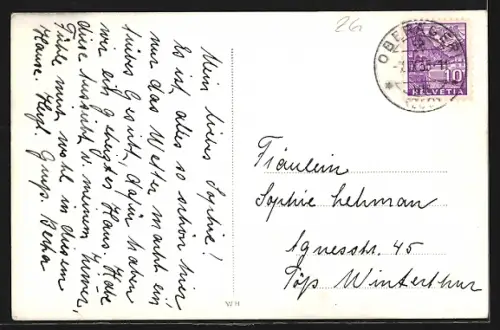 Mein liebes Sophie!
Es ist alles so schön nur
nur das Wetter macht ein
trübes Gesicht, dafür haben
wir ein gelungenes Haus. Habe
diese Ansicht v. meinem Zimmer,
Fühle mich wohl in diesem
Hause. Herzl. Gruss. Berta
26
OBERÄGERI
10
HELVETIA
Fräulein
Sophie Lehman
Agnesstr. 45
Töss Winterthur